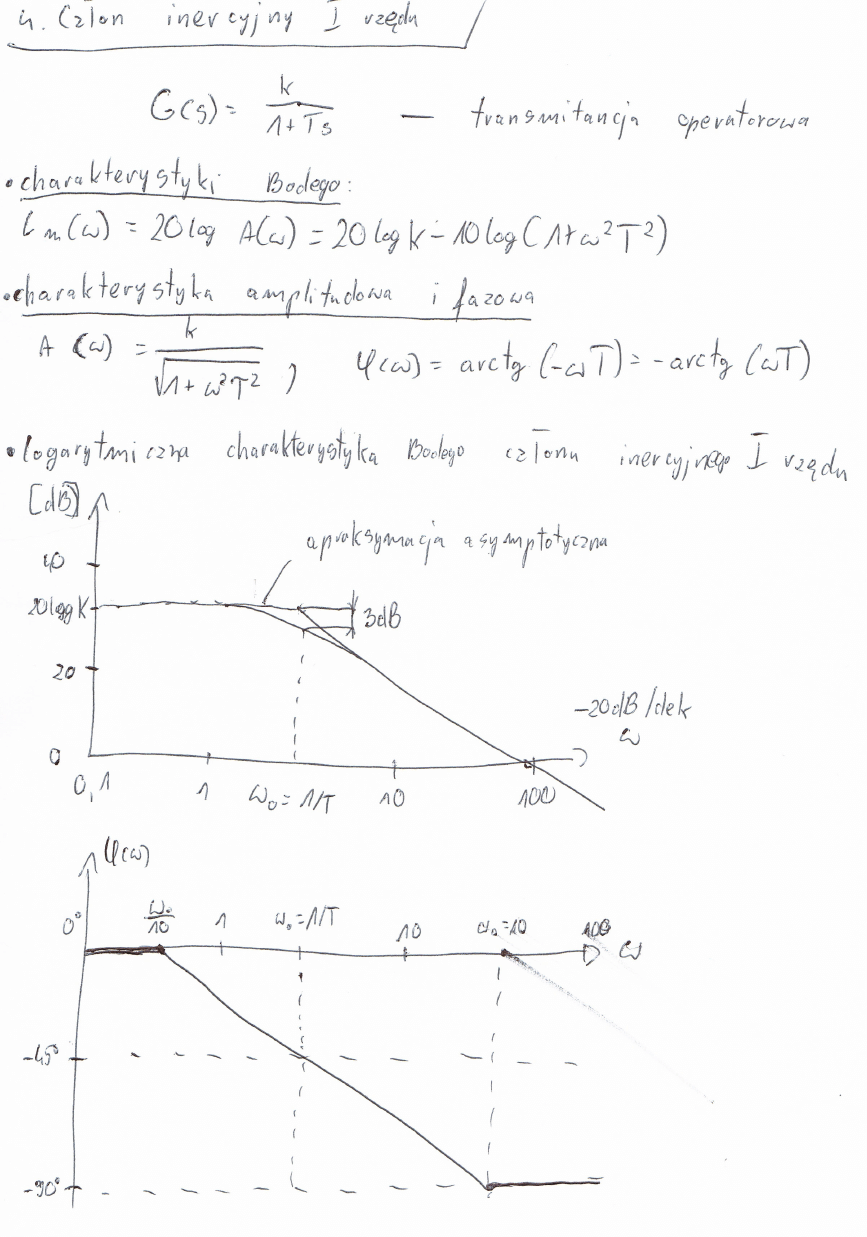 4. Człon inercyjny I rzędu
G(s) = k / 1+Ts — transmitancja operatorowa
• charakterystyki Bodego:
Lm(ω) = 20 log A(ω) = 20 log k - 10 log (1+ω²T²)
• charakterystyka amplitudowa i fazowa
A (ω) = k / √1+ω²T² ; φ(ω) = arctg (-ωT) = -arctg (ωT)
• logarytmiczna charakterystyka Bodego członu inercyjnego I rzędu
[dB]
aproksymacja asymptotyczna
40
20logK
3dB
20
-20dB/dek
ω
0
0,1 1 ω₀ = 1/T 10 100
φ(ω)
0° ω₀/10 1 ω₀ = 1/T 10 ω₀=10 100
ω
-45°
-90°